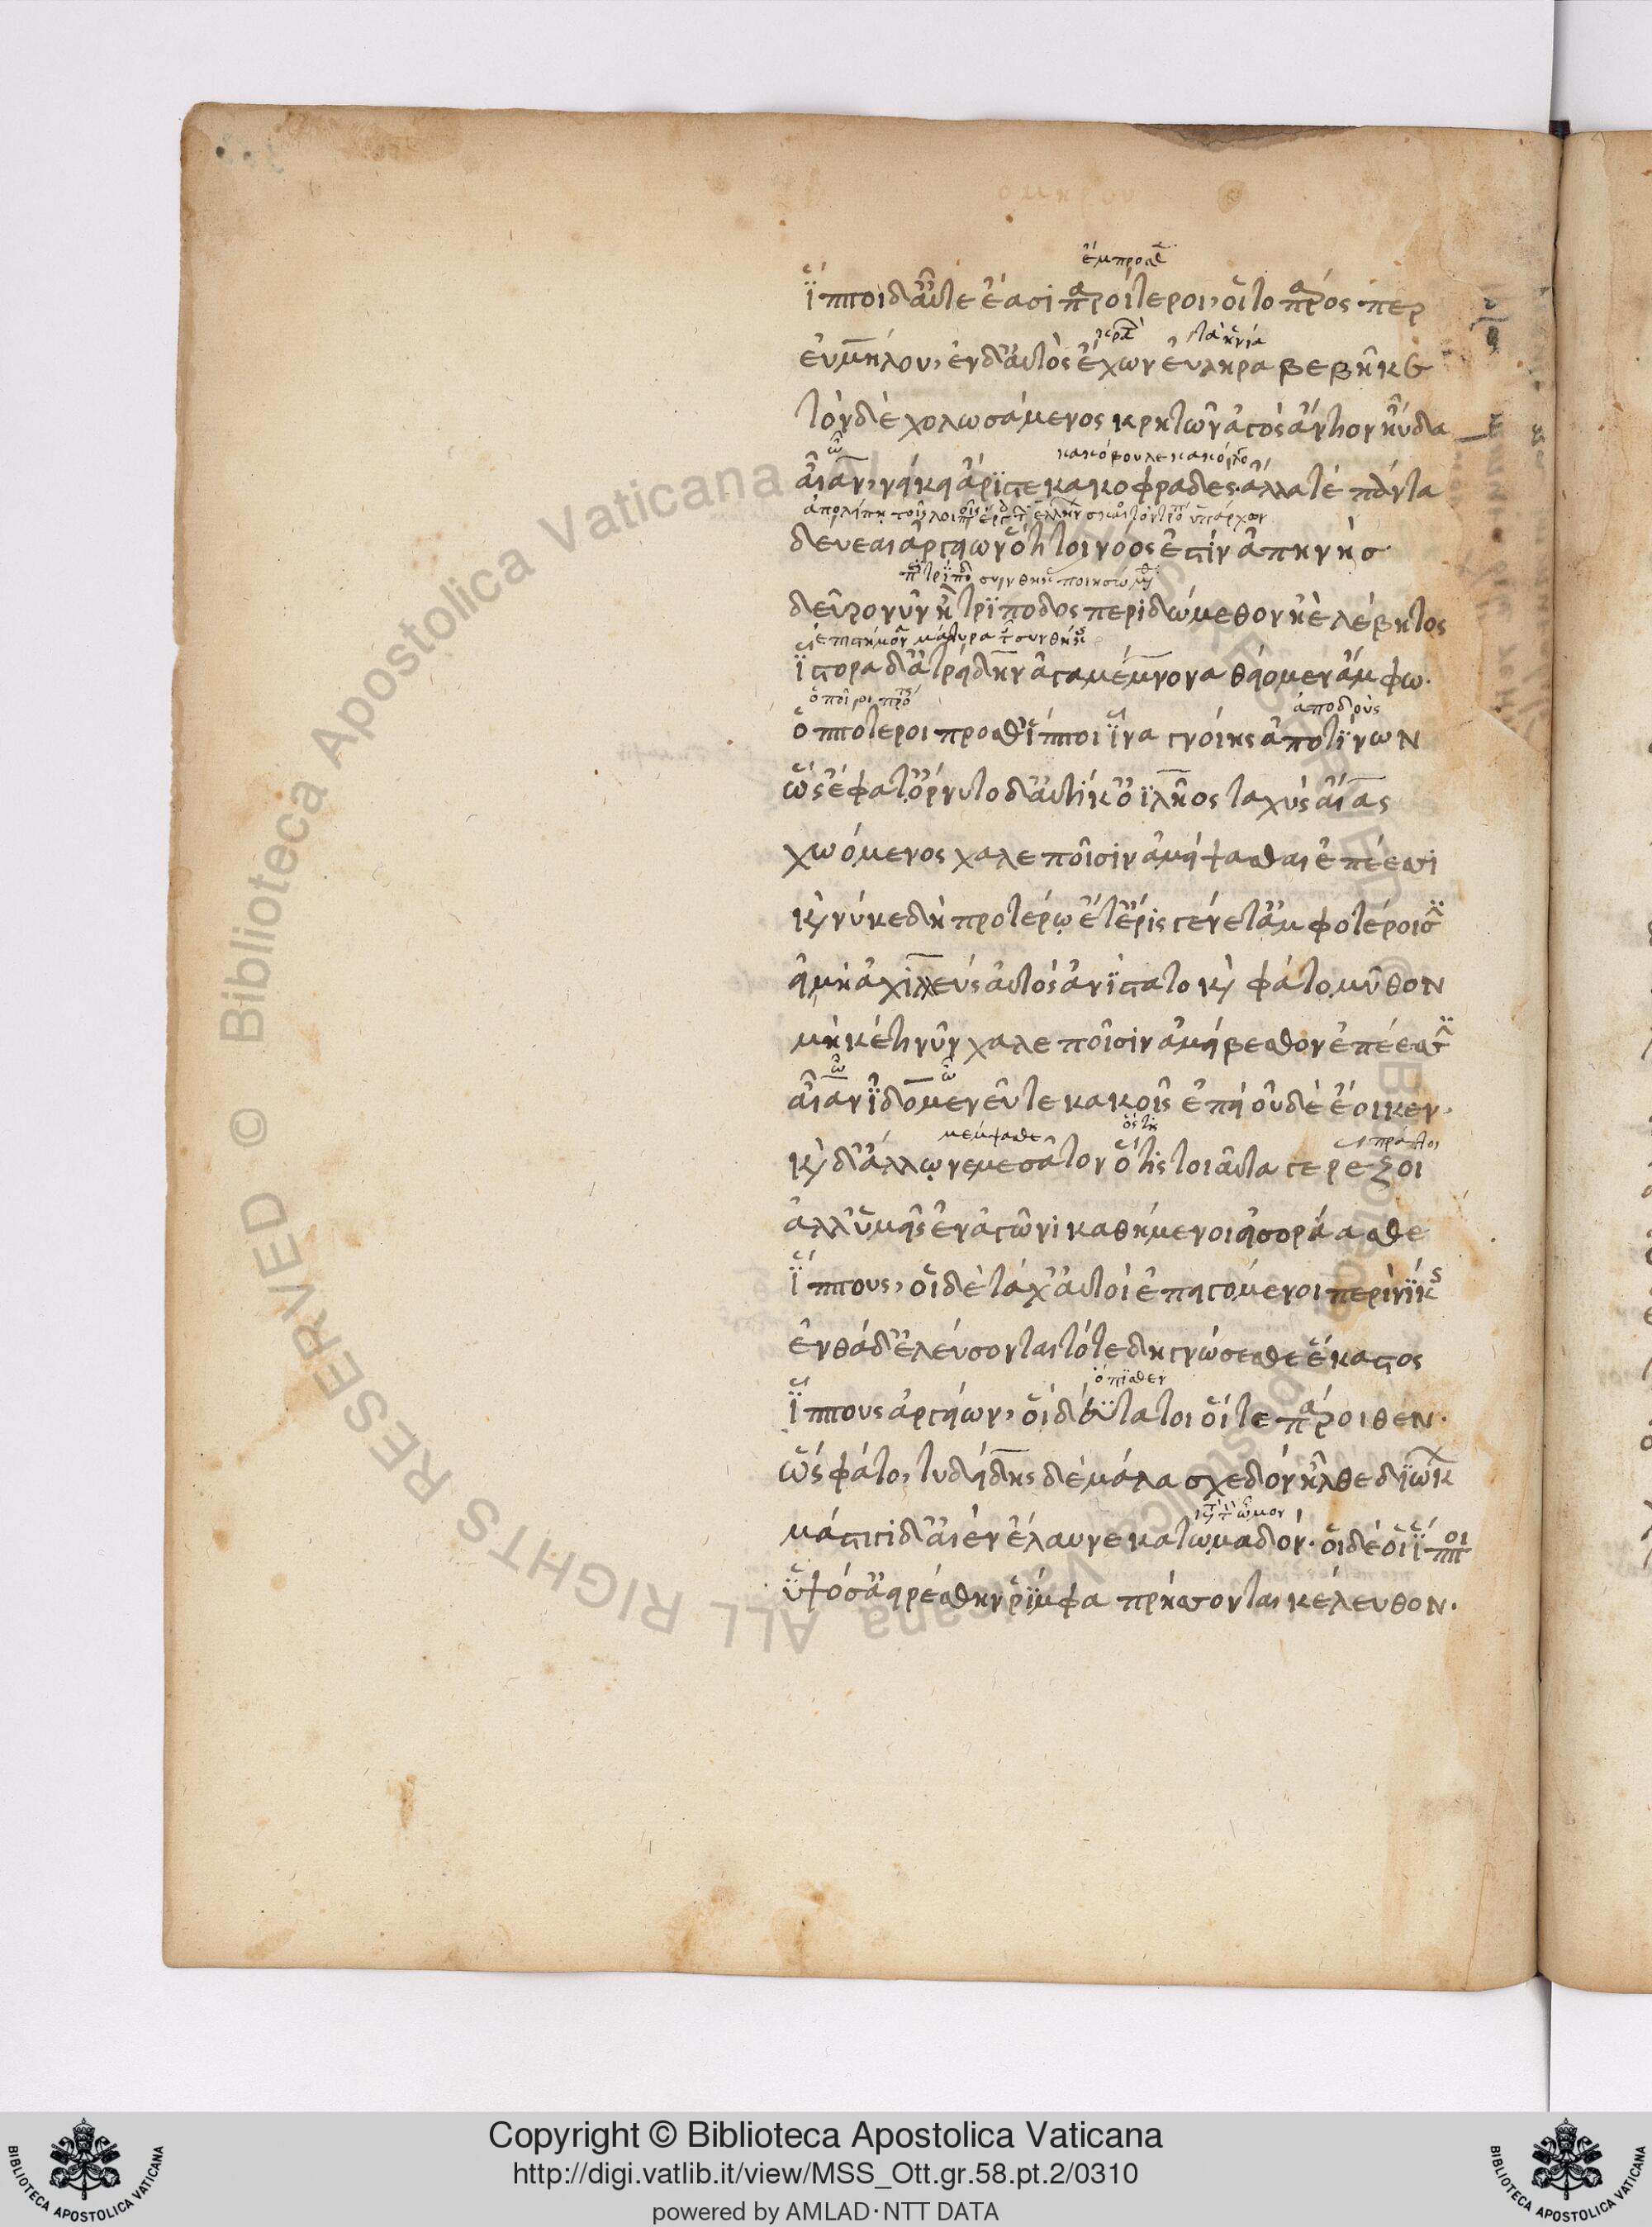 ἔμπροσθ
ἵπποι δ' αὖτε ἔασι παροίτεροι, οἳ τὸ πάρος περ
κρατ τὰ ἡνία
ἐυμήλου, ἐν δ' αὐτὸς ἔχων εὔληρα βέβηκε
τὸν δὲ χολωσάμενος κρητῶν ἀγὸς ἀντίον ηὔδα
ὦ κακόβουλε
αἶαν, νείκει ἄριστε κακοφραδὲς. ἄλλά τε πάντα
δεύεαι ἀργείων ὅτι τοι νόος ἐστὶν ἀπηνής
δεῦρό νυν ἢ τρίποδος περιδώμεθον ἠὲ λέβητος
ἵστορα δ' ἀτρείδην ἀγαμέμνονα θείομεν ἄμφω.
ἀποδοὺς
ὁππότεροι πρόσθ' ἵπποι ἵνα γνοίης ἀποτίνων
ὣς ἔφατ' ὤρνυτο δ' αὐτίκ' ὀϊλῆος ταχὺς αἴας
χωόμενος χαλεποῖσιν ἀμείψασθαι ἐπέεσσι
καί νύ κε δὴ προτέρω ἔτ' ἔρις γένετ' ἀμφοτέροισι
εἰ μὴ ἀχιλλεὺς αὐτὸς ἀνίστατο καὶ φάτο μῦθον
μηκέτι νῦν χαλεποῖσιν ἀμείβεσθον ἐπέεσσι
ὦ ὦ
αἶαν ἰδομενεῦ τε κακοῖς ἐπεὶ οὐδὲ ἔοικεν.
μέμψασθε ὅστις πράττοι
καὶ δ' ἄλλῳ νεμεσᾶτον ὅτις τοιαῦτά γε ῥέζοι
ἀλλ' ὑμεῖς ἐν ἀγῶνι καθήμενοι εἰσοράασθε
ἵππους, οἱ δὲ τάχ' αὐτοὶ ἐπειγόμενοι περὶ νίκης
ἐνθάδ' ἐλεύσονται τότε δὴ γνώσεσθε ἕκαστος
ὄπισθεν
ἵππους ἀργείων, οἳ δεύτατοι οἵ τε πάροιθεν.
ὣς φάτο, τυδείδης δὲ μάλα σχεδὸν ἦλθε διώκ
μάστιγι δ' αἰὲν ἔλαυνε κατωμαδόν. οἱ δέ οἱ ἵπποι
ὑψόσ' ἀειρέσθην ῥίμφα πρήσσονται κέλευθον.
Copyright © Biblioteca Apostolica Vaticana
http://digi.vatlib.it/view/MSS_Ott.gr.58.pt.2/0310
powered by AMLAD·NTT DATA
BIBLIOTECA APOSTOLICA VATICANA
BIBLIOTECA APOSTOLICA VATICANA
© Biblioteca Apostolica Vaticana ALL RIGHTS RESERVED